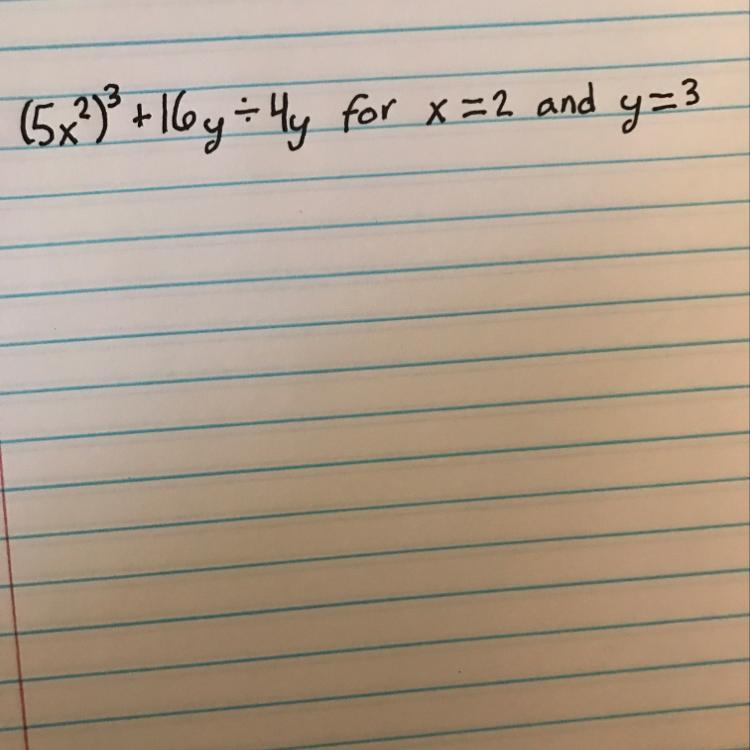 (5x²)³ + 16y ÷ 4y for x = 2 and y = 3